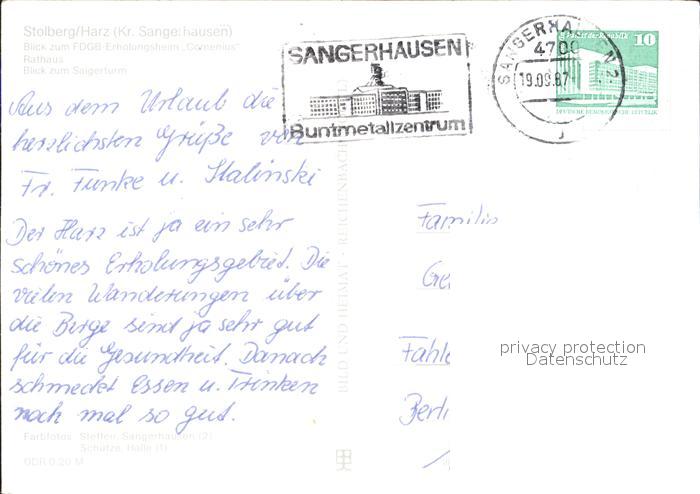 Stolberg/Harz (Kr. Sangerhausen)
Blick zum FDGB-Erholungsheim „Comenius"
Rathaus
Blick zum Saigerturm
Aus dem Urlaub die
herzlichsten Grüße von
Fr. Funke u. Stalinski
Der Harz ist ja ein sehr
schönes Erholungsgebiet. Die
vielen Wanderungen über
die Berge sind ja sehr gut
für die Gesundheit. Danach
schmeckt Essen u. Trinken
noch mal so gut.
Farbfotos: Steffen, Sangerhausen (2)
Schütze, Halle (1)
DDR 0,20 M
BILD UND HEIMAT · REICHENBACH
SANGERHAUSEN
Buntmetallzentrum
SANGERHAUSEN 2
4700
19.09.87
J
Palast der Republik 10
DEUTSCHE DEMOKRATISCHE REPUBLIK
Familie
Ge
Fahle
Berli
privacy protection
Datenschutz